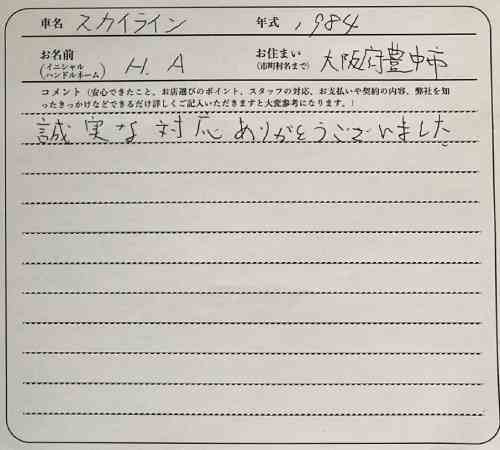 車名 スカイライン 年式 1984
お名前 (イニシャル ハンドルネーム) H. A お住まい (市町村名まで) 大阪府豊中市
コメント（安心できたこと、お店選びのポイント、スタッフの対応、お支払いや契約の内容、弊社を知
ったきっかけなどできるだけ詳しくご記入いただきますと大変参考になります。）
誠実な対応ありがとうございました。